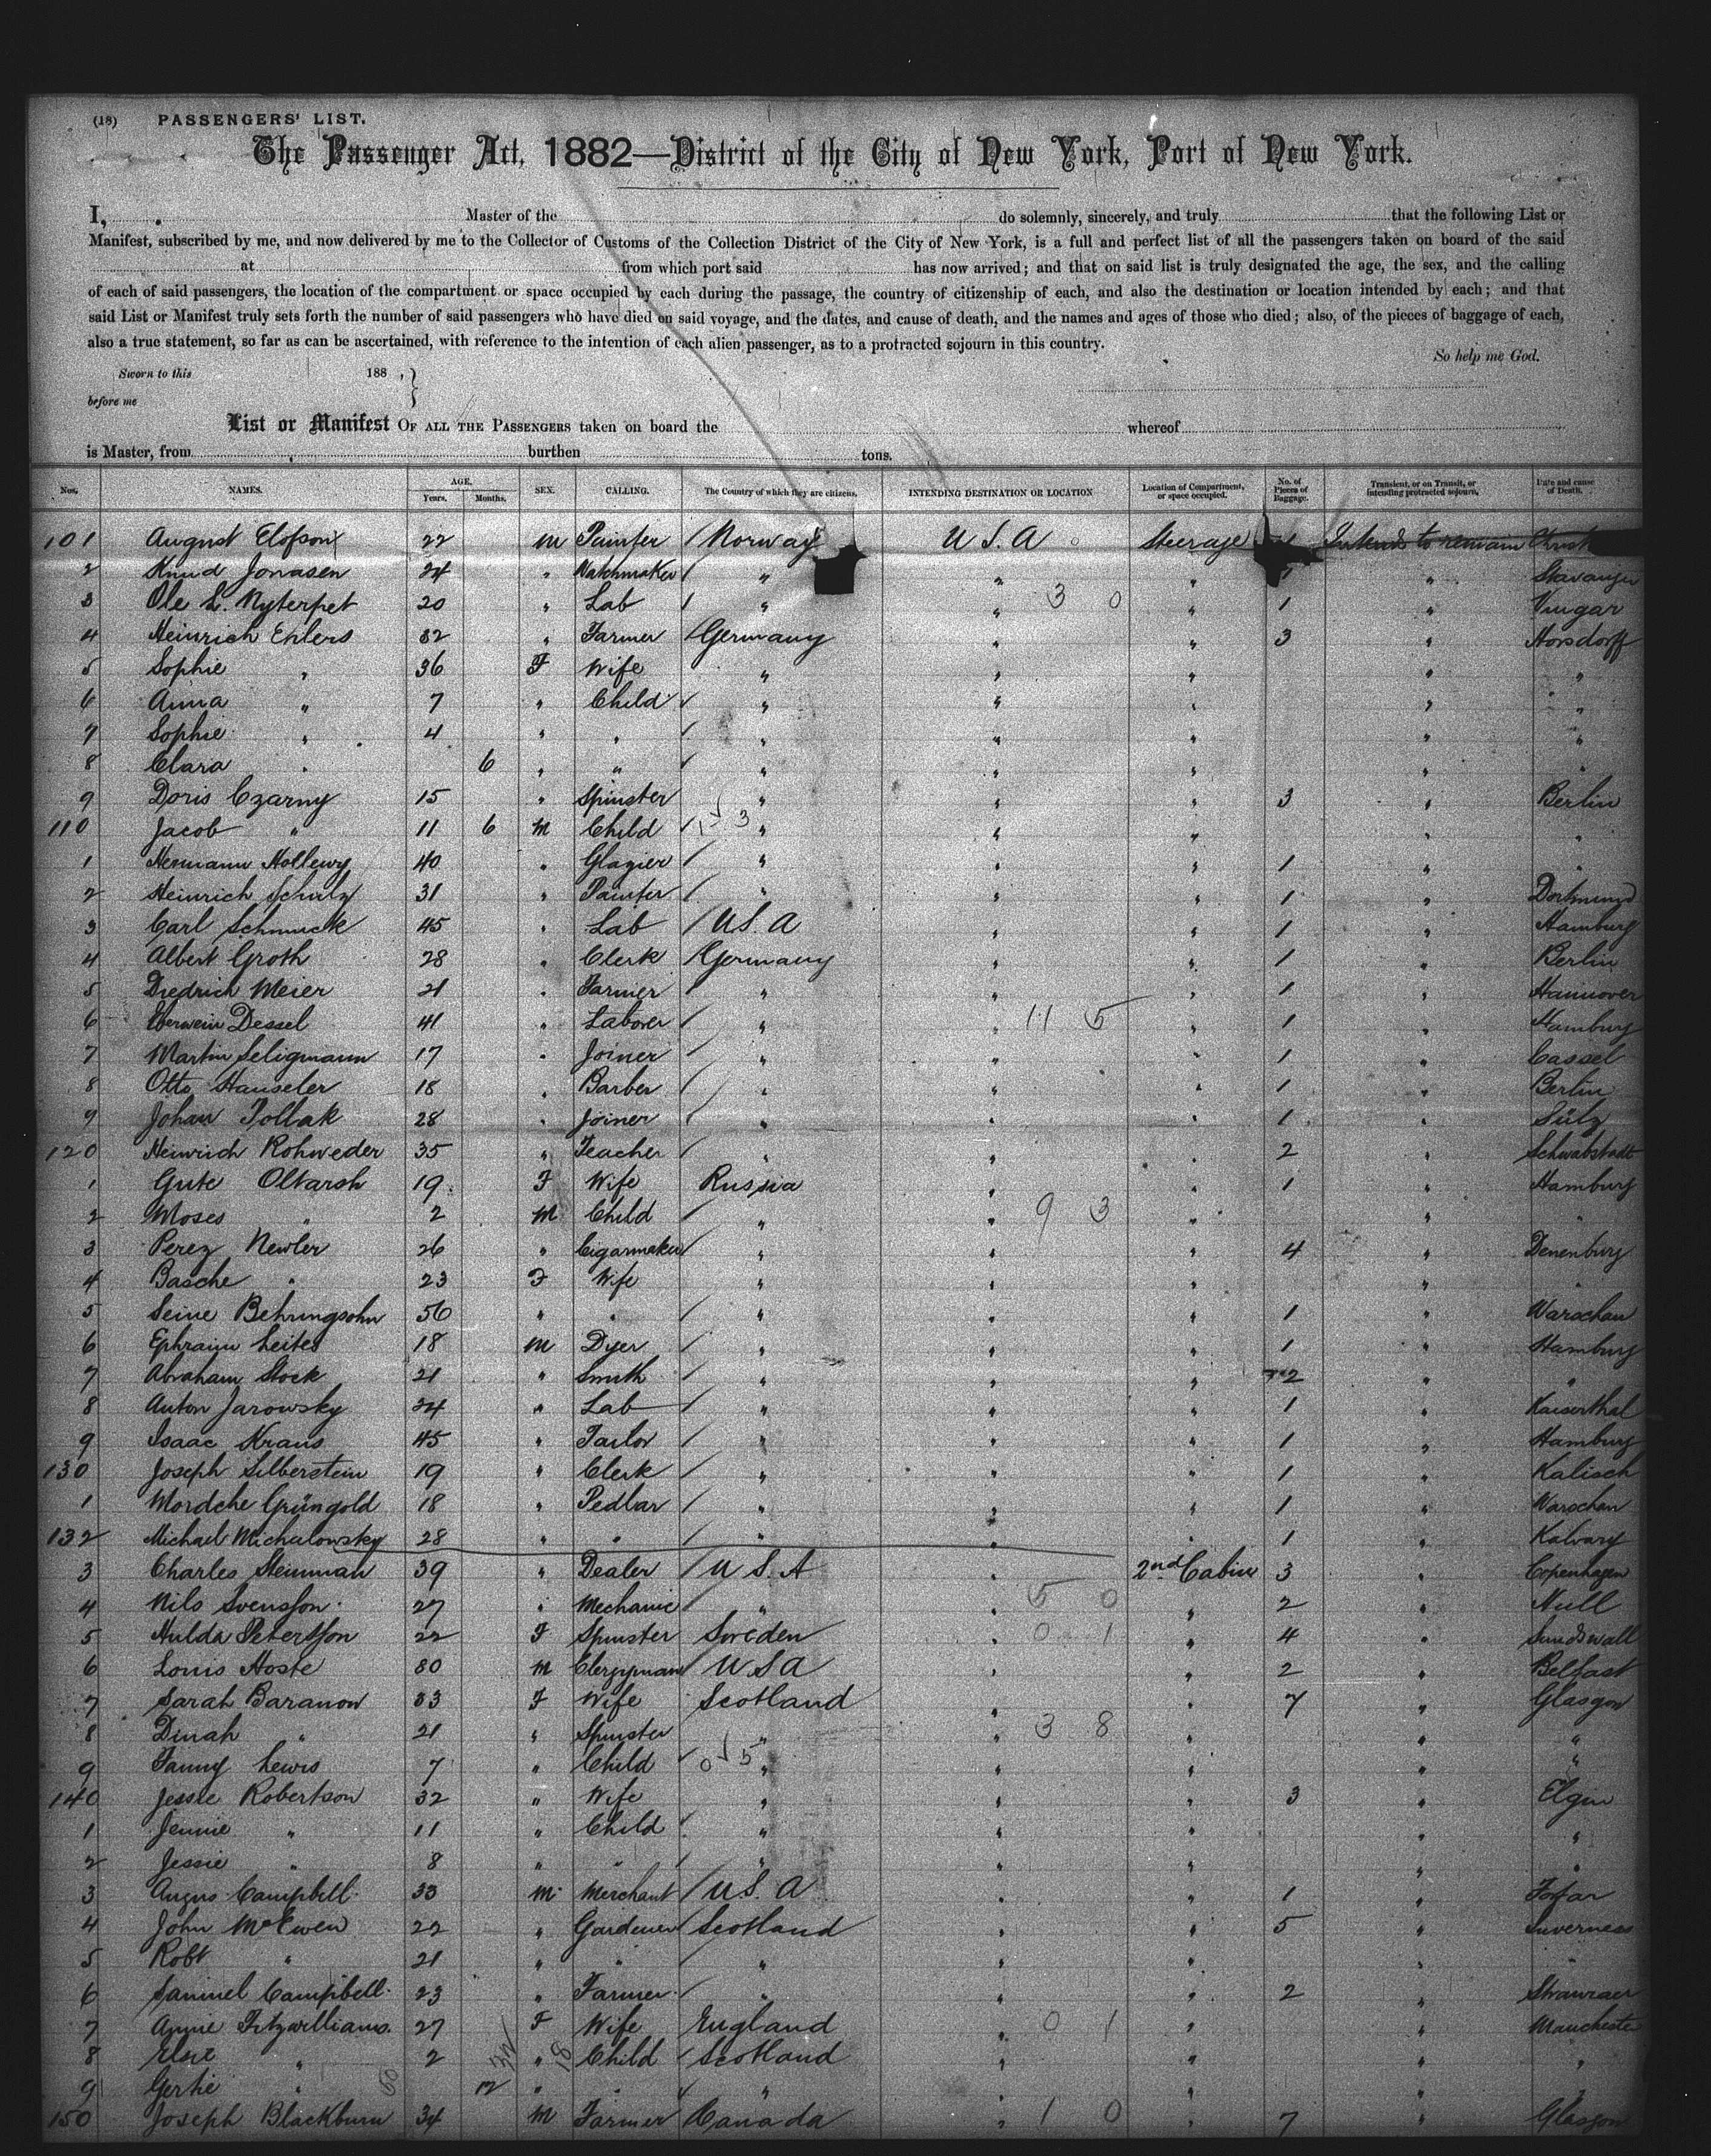 (18) PASSENGERS' LIST.
The Passenger Act, 1882—District of the City of New York, Port of New York.
I, Master of the do solemnly, sincerely, and truly that the following List or
Manifest, subscribed by me, and now delivered by me to the Collector of Customs of the Collection District of the City of New York, is a full and perfect list of all the passengers taken on board of the said
at from which port said has now arrived; and that on said list is truly designated the age, the sex, and the calling
of each of said passengers, the location of the compartment or space occupied by each during the passage, the country of citizenship of each, and also the destination or location intended by each; and that
said List or Manifest truly sets forth the number of said passengers who have died on said voyage, and the dates, and cause of death, and the names and ages of those who died; also, of the pieces of baggage of each,
also a true statement, so far as can be ascertained, with reference to the intention of each alien passenger, as to a protracted sojourn in this country.
So help me God.
Sworn to this 188 ,
before me
List or Manifest OF ALL THE PASSENGERS taken on board the whereof
is Master, from burthen tons.
Nos. NAMES. AGE. Years. Months. SEX. CALLING. The Country of which they are citizens. INTENDING DESTINATION OR LOCATION Location of Compartment, or space occupied. No. of Pieces of Baggage. Transient, or on Transit, or intending protracted sojourn. Date and cause of Death.
101 August Elofson 22 M Painter / Norway U S. A Steerage 1 Intends to remain
2 Knud Jonasen 24 " Watchmaker / " " " " Stavanger
3 Ole L. Nyterpet 20 " Lab / " " 3 0 " 1 "
4 Heinrich Ehlers 32 " Farmer / Germany " " 3 " Horsdorff
5 Sophie " 36 F Wife " " " " "
6 Anna " 7 " Child ✓ " " " " "
7 Sophie " 4 " " / " " " " "
8 Clara " 6 " " ✓ " " " " "
9 Doris Czarny 15 " Spinster " " " 3 " Berlin
110 Jacob " 11 6 M Child ✓ 1 3 " " " " "
1 Hermann Hollewy 40 " Glazier / " " " 1 " "
2 Heinrich Schulz 31 " Painter / " " " 1 " Dortmund
3 Carl Schmuck 45 " Lab / U S. A " " 1 " Hamburg
4 Albert Groth 28 " Clerk / Germany " " 1 " Berlin
5 Diedrich Meier 21 " Farmer / " " " 1 " Hannover
6 Dessel 41 " Laborer / " " 11 5 " 1 " Hamburg
7 Martin Seligmann 17 " Joiner / " " " 1 " Cassel
8 Otto Hauseler 18 " Barber / " " " 1 " Berlin
9 Johan Pollak 28 " Joiner / " " " 1 " Sülz
120 Heinrich Rohweder 35 " Teacher / " " " 2 " Schwabstadt
1 Gute Oltarsh 19 F Wife Russia " " 1 " Hamburg
2 Moses " 2 M Child / " " 9 3 " " "
3 Perez Newler 26 " Cigarmaker / " " " 4 " Denenburg
4 Basche " 23 F Wife " " " " "
5 Seine Behrungsohn 56 " " / " " " 1 " Warschau
6 Ephraim Leites 18 M Dyer / " " " 1 " Hamburg
7 Abraham Stock 21 " Smith / " " " 2 " "
8 Anton Jarowsky 24 " Lab / " " " 1 " Kaiserthal
9 Isaac Kraus 45 " Tailor / " " " 1 " Hamburg
130 Joseph Silberstein 19 " Clerk / " " " 1 " Kalisch
1 Mordche Grüngold 18 " Pedlar / " " " 1 " Warschau
132 Michael Michalowsky 28 " " / " " " 1 " Kalvary
3 Charles Steinman 39 " Dealer / U S. A " 2nd Cabin 3 " Copenhagen
4 Nils Svensson 27 " Mechanic / " " 5 0 " 2 " Hull
5 Hulda Petersson 22 F Spinster Sweden " 0 1 " 4 " Sundswall
6 Louis Hoste 80 M Clergyman / U S A " " 2 " Belfast
7 Sarah Baranow 33 F Wife Scotland " " 7 " Glasgow
8 Dinah " 21 " Spinster " " 3 8 " " "
9 Fanny Lewis 7 " Child ✓ 0 5 " " " " "
140 Jessie Robertson 32 " Wife " " " 3 " Elgin
1 Jennie " 11 " Child / " " " " "
2 Jessie " 8 " " / " " " " "
3 Angus Campbell 33 M Merchant / U S. A " " 1 " Forfar
4 John McEwen 22 " Gardener / Scotland " " 5 " Inverness
5 Robt " 21 " " / " " " " "
6 Samuel Campbell 23 " Farmer / " " " 2 " Stranraer
7 Annie Fitzwilliams 27 F Wife England " 0 1 " " Manchester
8 Elsie " 2 " Child / Scotland " " " "
9 Gertie " 12 " " ✓ " " " " "
150 Joseph Blackburn 34 M Farmer / Canada " 1 0 " 7 " Glasgow